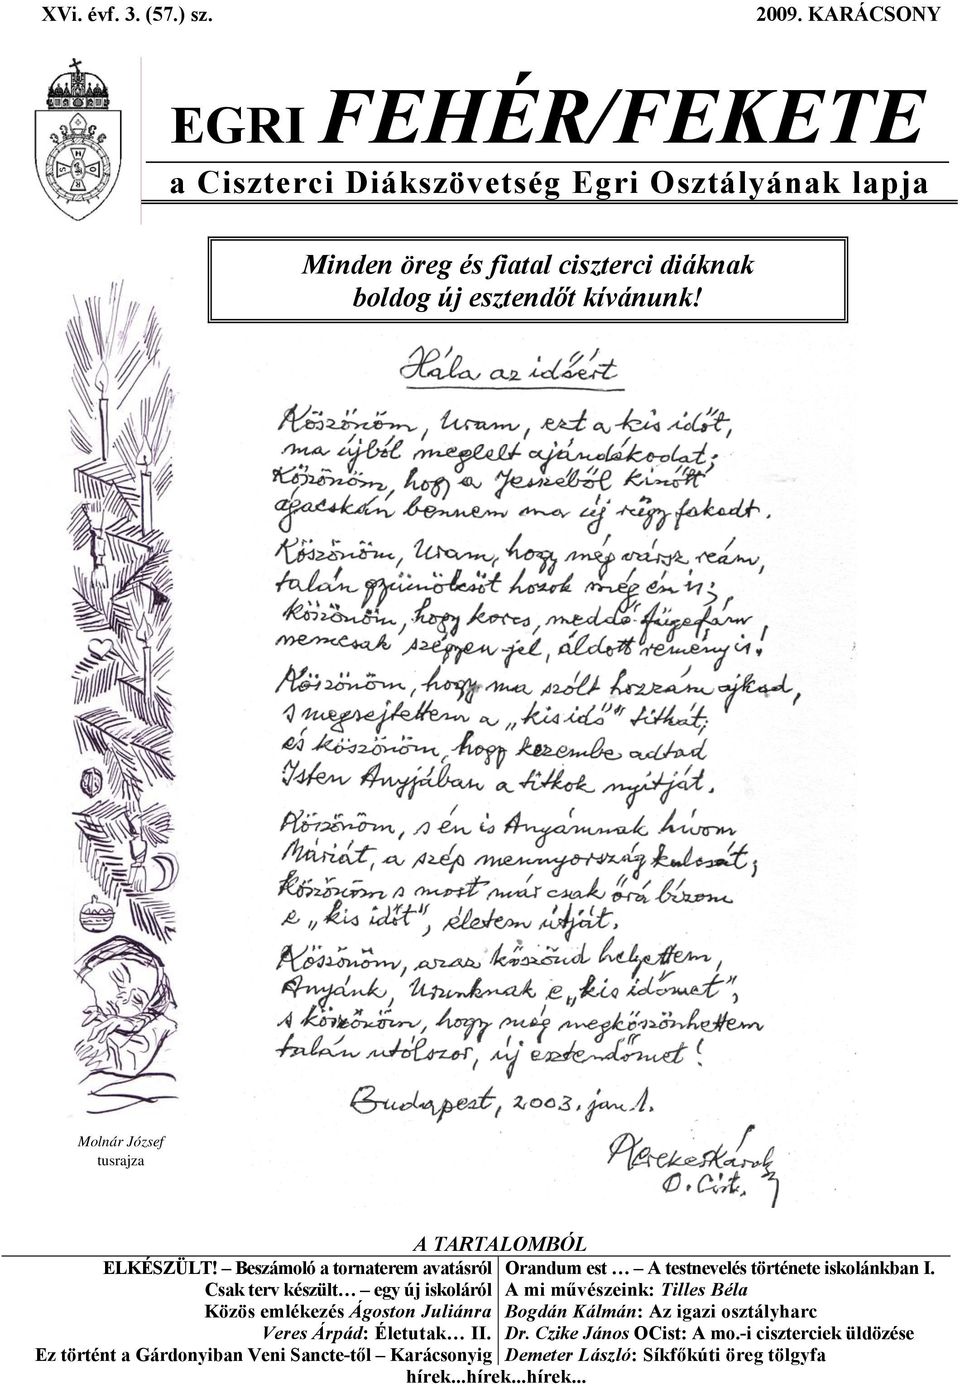 XVi. évf. 3. (57.) sz. 2009. KARÁCSONY
EGRI FEHÉR/FEKETE
a Ciszterci Diákszövetség Egri Osztályának lapja
Minden öreg és fiatal ciszterci diáknak
boldog új esztendőt kívánunk!
Hála az időért
Köszönöm, Uram, ezt a kis időt,
ma újból meglelt ajándékodat;
Köszönöm, hogy a Jesszéből kinőtt
ágacskán bennem ma új rügy fakadt.
Köszönöm, Uram, hogy még vársz reám,
talán gyümölcsöt hozok még én is;
köszönöm, hogy korcs, meddő fügefám,
nemcsak szégyen-jel, áldott remény is!
Köszönöm, hogy ma szólt hozzám ajkad,
s megsejtettem a „kis idő" titkát;
és köszönöm, hogy kezembe adtad
Isten Anyjában a titkok nyitját.
Köszönöm, s én is Anyámnak hívom
Máriát, a szép mennyország kulcsát;
Köszönöm s most már csak őrá bízom
e „kis időt", életem útját.
Köszönöm, azaz köszönd helyettem,
Anyánk, Urunknak e „kis időmet",
s köszönöm, hogy még megköszönhettem
talán utólszor, új esztendőmet!
Budapest, 2003. jan. 1.
Kerekes Károly
O. Cist.
Molnár József
tusrajza
A TARTALOMBÓL
ELKÉSZÜLT! – Beszámoló a tornaterem avatásról Orandum est … – A testnevelés története iskolánkban I.
Csak terv készült… – egy új iskoláról A mi művészeink: Tilles Béla
Közös emlékezés Ágoston Juliánra Bogdán Kálmán: Az igazi osztályharc
Veres Árpád: Életutak… II. Dr. Czike János OCist: A mo.-i ciszterciek üldözése
Ez történt a Gárdonyiban Veni Sancte-től – Karácsonyig Demeter László: Síkfőkúti öreg tölgyfa
hírek...hírek...hírek...